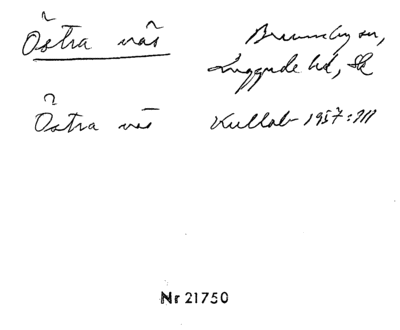 Östra vås Brunnby sn,
Luggude hd, Sk
Östra vås Kullab 1957:111
Nr 21750